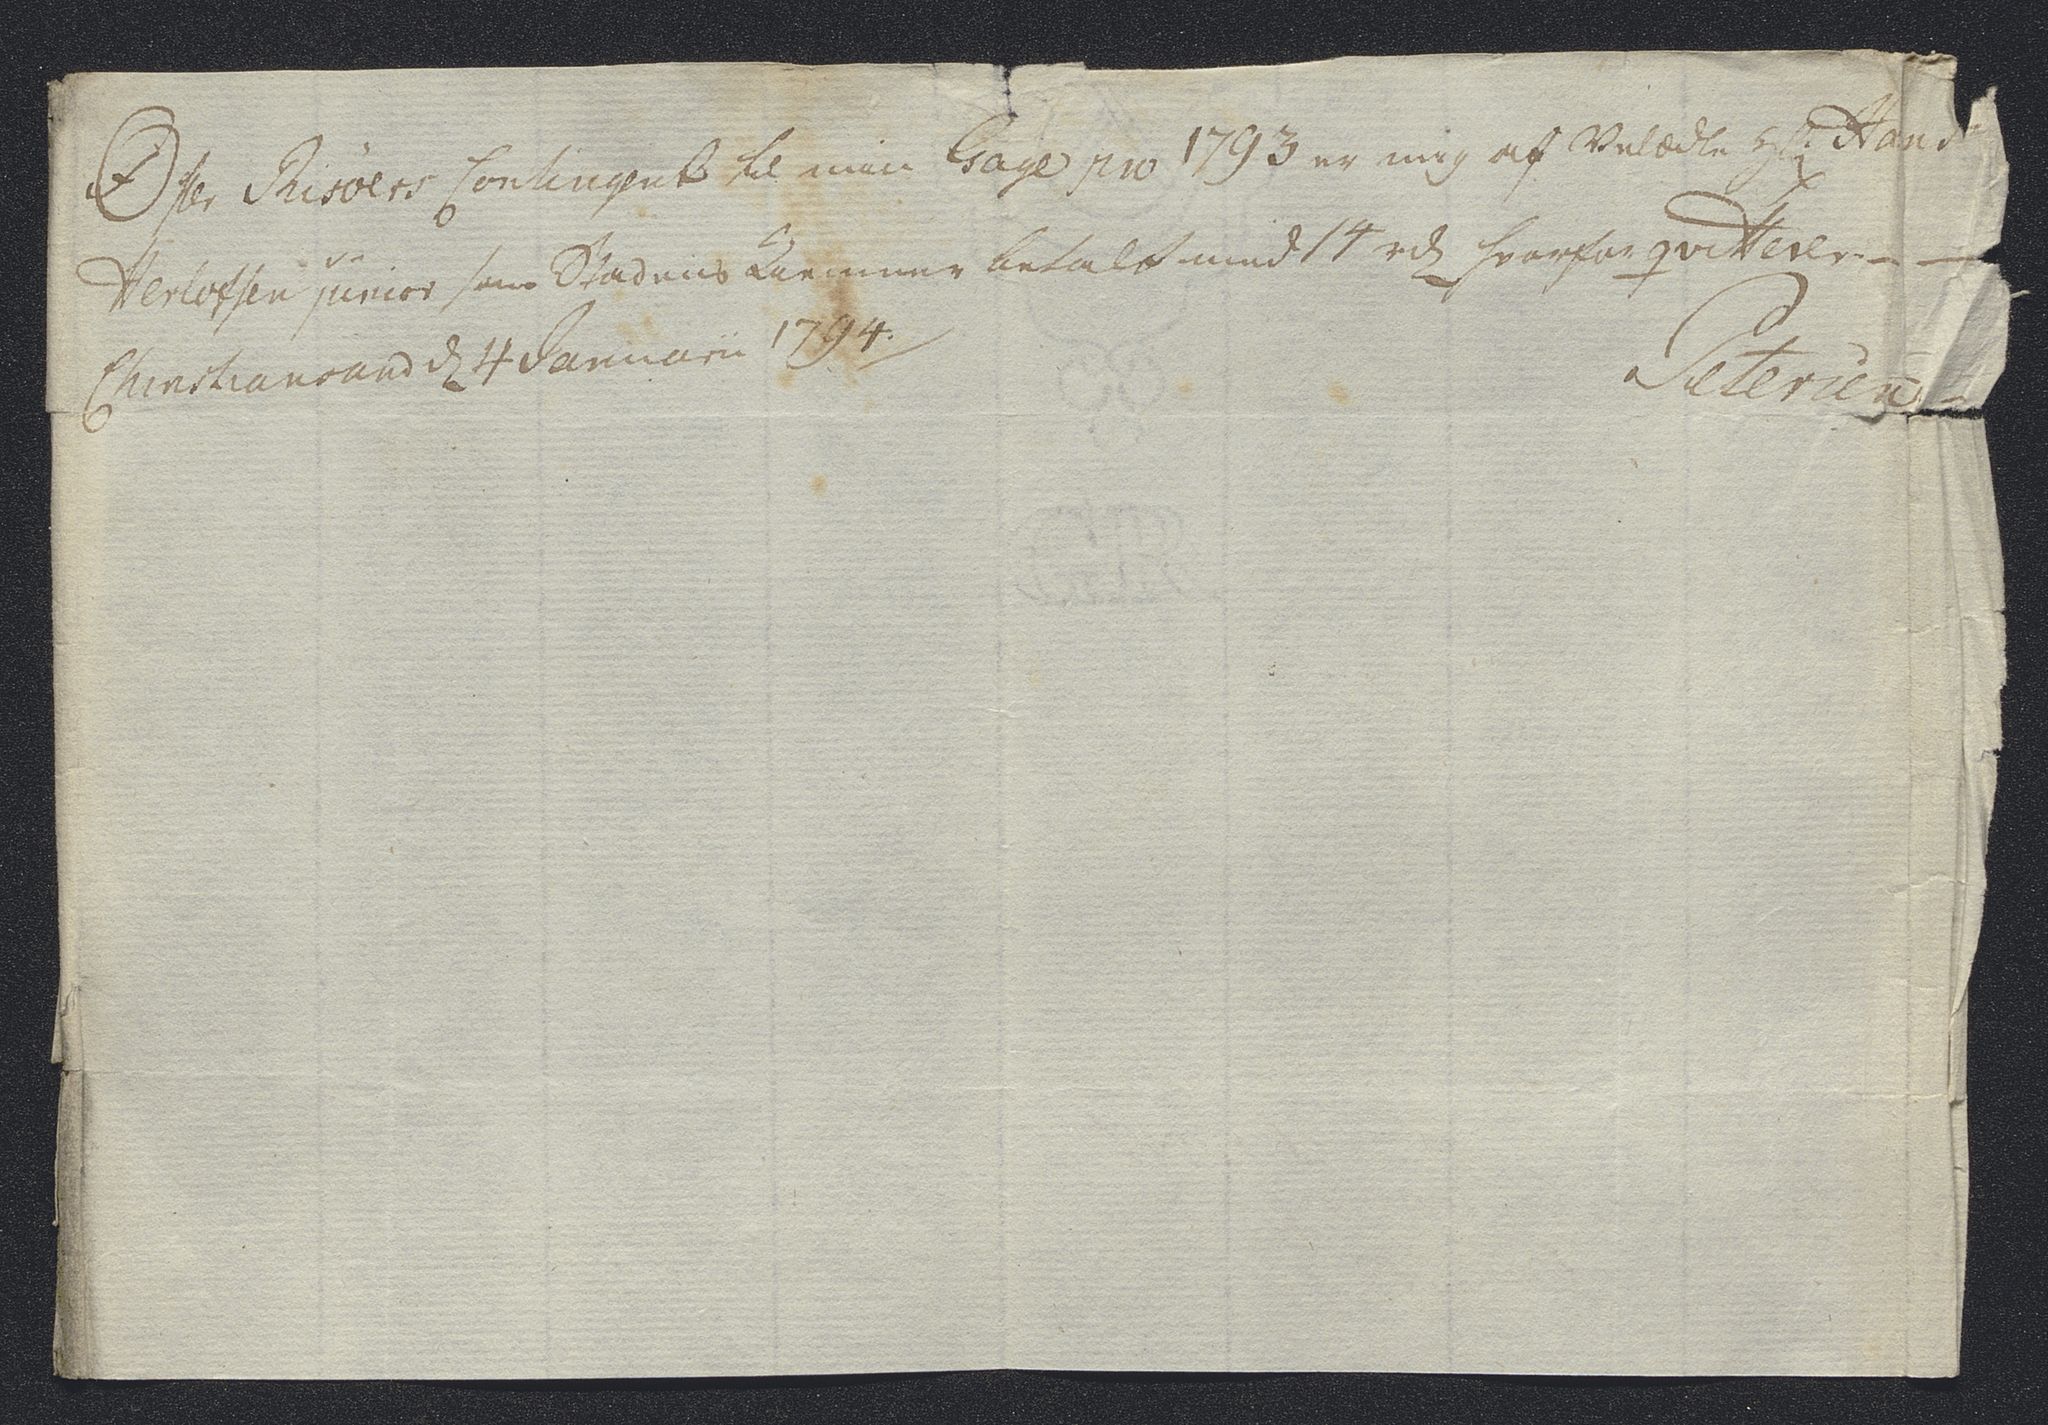 Øster Risöers Contingent til min Gage pro 1793 er mig af Velædle Hr. Hans
Herlofsen junior som Stadens Kæmner betalt med 14 rd hvorfor qvitterer
Christiansand d 4 Januarii 1794.
Petersen